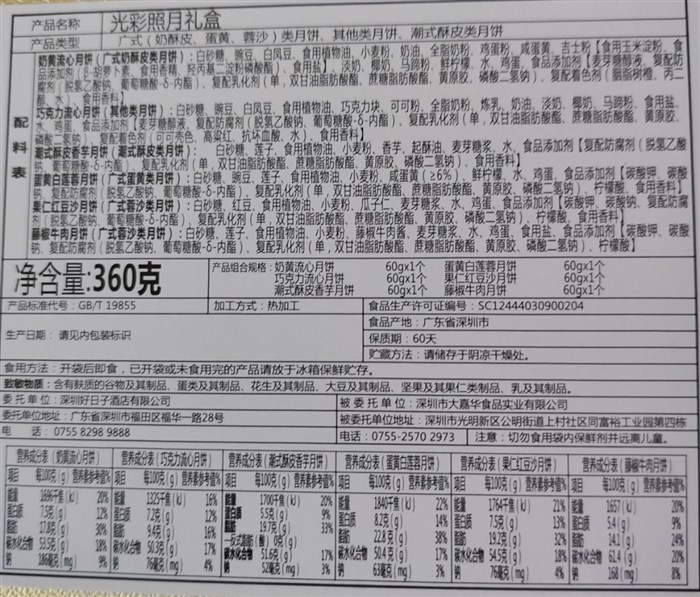 产品名称 光彩照月礼盒
产品类型 广式（奶酥皮、蛋黄、蓉沙）类月饼、其他类月饼、潮式酥皮类月饼
配料表
奶黄流心月饼（广式奶酥皮类月饼）：白砂糖、豌豆、白凤豆、食用植物油、小麦粉、奶油、全脂奶粉、鸡蛋粉、咸蛋黄、吉士粉【食用玉米淀粉、食
品添加剂（β-胡萝卜素、食用香精、羟丙基二淀粉磷酸酯）、食用盐】、淡奶、椰奶、马蹄粉、鲜柠檬、水、鸡蛋、食品添加剂【麦芽糖醇液、复配防
腐剂（脱氢乙酸钠、葡萄糖酸-δ-内酯）、复配乳化剂（单，双甘油脂肪酸酯、蔗糖脂肪酸酯、黄原胶、磷酸二氢钠）、复配着色剂（胭脂树橙、丙二
醇、水）、食用香料】
巧克力流心月饼（其他类月饼）：白砂糖、豌豆、白凤豆、食用植物油、巧克力块、可可粉、全脂奶粉、炼乳、奶油、淡奶、椰奶、马蹄粉、食用盐、
水、鸡蛋、食品添加剂【麦芽糖醇液、复配防腐剂（脱氢乙酸钠、葡萄糖酸-δ-内酯）、复配乳化剂（单，双甘油脂肪酸酯、蔗糖脂肪酸酯、黄原胶、
磷酸二氢钠）、复配着色剂（可可壳色、高粱红、抗坏血酸、水）、食用香料】
潮式酥皮香芋月饼（潮式酥皮类月饼）： 白砂糖、莲子、食用植物油、小麦粉、香芋、起酥油、麦芽糖浆、水、食品添加剂【复配防腐剂（脱氢乙酸
钠、葡萄糖酸-δ-内酯）、复配乳化剂（单，双甘油脂肪酸酯、蔗糖脂肪酸酯、黄原胶、磷酸二氢钠）、食用香料】
蛋黄白莲蓉月饼（广式蛋黄类月饼）：白砂糖、豌豆、莲子、食用植物油、小麦粉、咸蛋黄（≥6%）、鲜柠檬、水、鸡蛋、食品添加剂【碳酸钾、碳酸
钠、复配防腐剂（脱氢乙酸钠、葡萄糖酸-δ-内酯）、复配乳化剂（单，双甘油脂肪酸酯、蔗糖脂肪酸酯、黄原胶、磷酸二氢钠）、柠檬酸、食用香料】
果仁红豆沙月饼（广式蓉沙类月饼）：白砂糖、红豆、食用植物油、小麦粉、瓜子仁、麦芽糖浆、水、鸡蛋、食品添加剂【碳酸钾、碳酸钠、复配防腐
剂（脱氢乙酸钠、葡萄糖酸-δ-内酯）、复配乳化剂（单，双甘油脂肪酸酯、蔗糖脂肪酸酯、黄原胶、磷酸二氢钠）、柠檬酸、食用香料】
藤椒牛肉月饼（广式蓉沙类月饼）：白砂糖、莲子、食用植物油、小麦粉、藤椒牛肉酱、麦芽糖浆、水、鸡蛋、食用盐、食品添加剂【碳酸钾、碳酸
钠、复配防腐剂（脱氢乙酸钠、葡萄糖酸-δ-内酯）、复配乳化剂（单，双甘油脂肪酸酯、蔗糖脂肪酸酯、黄原胶、磷酸二氢钠）、柠檬酸】
净含量:360克
产品组合规格：奶黄流心月饼 60gx1个 蛋黄白莲蓉月饼 60gx1个
巧克力流心月饼 60gx1个 果仁红豆沙月饼 60gx1个
潮式酥皮香芋月饼 60gx1个 藤椒牛肉月饼 60gx1个
产品标准代号：GB/T 19855 加工方式：热加工 食品生产许可证编号：SC12444030900204
食品产地：广东省深圳市
生产日期：请见内包装标识 保质期：60天
贮藏方法：请储存于阴凉干燥处。
食用方法：开袋后即食，已开袋或未食用完的产品请放于冰箱保鲜贮存。
致敏物质：含有麸质的谷物及其制品、蛋类及其制品、花生及其制品、大豆及其制品、坚果及其果仁类制品、乳及其制品。
委托单位：深圳好日子酒店有限公司 被委托单位：深圳市大嘉华食品实业有限公司
委托单位地址：广东省深圳市福田区福华一路28号 被委托单位地址：深圳市光明新区公明街道上村社区同富裕工业园第四栋
电 话：0755 8298 9888 电话：0755-2570 2973 注意：切勿食用袋内保鲜剂并远离儿童。
营养成分表（奶黄流心月饼） 营养成分表（巧克力流心月饼） 营养成分表（潮式酥皮香芋月饼） 营养成分表（蛋黄白莲蓉月饼） 营养成分表（果仁红豆沙月饼） 营养成分表（藤椒牛肉月饼）
项目 每100克(g) 营养素参考值% 项目 每100克(g) 营养素参考值% 项目 每100克(g) 营养素参考值% 项目 每100克(g) 营养素参考值% 项目 每100克(g) 营养素参考值% 项目 每100克(g) 营养素参考值%
能量 1696千焦(kJ) 20% 能量 1325千焦(kJ) 16% 能量 1700千焦(kJ) 20% 能量 1840千焦(kJ) 22% 能量 1764千焦(kJ) 21% 能量 1657(kJ) 20%
蛋白质 7.5克(g) 12% 蛋白质 7.2克(g) 12% 蛋白质 5.5克(g) 9% 蛋白质 8.2克(g) 14% 蛋白质 7.5克(g) 13% 蛋白质 5.4(g) 9%
脂肪 17.8克(g) 30% 脂肪 9.4克(g) 16% 脂肪 19.7克(g) 33% 脂肪 22.8克(g) 38% 脂肪 19.2克(g) 32% 脂肪 14.1(g) 24%
一反式脂肪(酸) 0克(g)
碳水化合物 53.5克(g) 18% 碳水化合物 50.3克(g) 17% 碳水化合物 51.6克(g) 17% 碳水化合物 50.4克(g) 17% 碳水化合物 54.5克(g) 18% 碳水化合物 61.4(g) 20%
钠 186毫克(mg) 9% 钠 76毫克(mg) 4% 钠 52毫克(mg) 3% 钠 63毫克(mg) 3% 钠 76毫克(mg) 4% 钠 168(mg) 8%